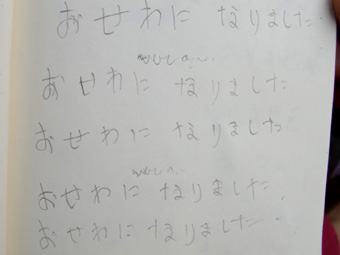 おせわに なりました.
おせわに なりました
おせわに なりました
おせわに なりました.
おせわに なりました.